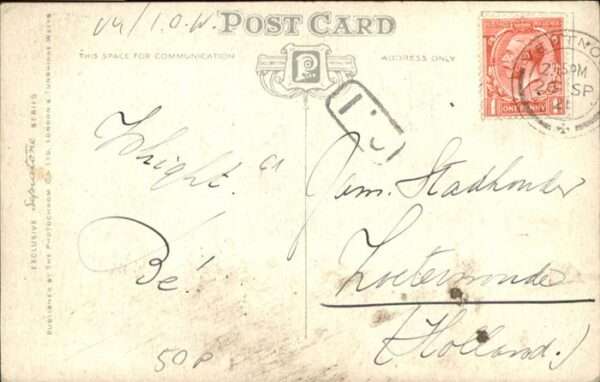 W/I.O.W.
POST CARD
THIS SPACE FOR COMMUNICATION
ADDRESS ONLY
EXCLUSIVE Sepiatone SERIES
PUBLISHED BY THE PHOTOCHROM CO. LTD. LONDON & TUNBRIDGE WELLS
P
ONE PENNY
1
VENTNOR
2 15 PM
SP
Bé!
Jem. Stadhouder
Zoeterwoude
(Holland.)
50P